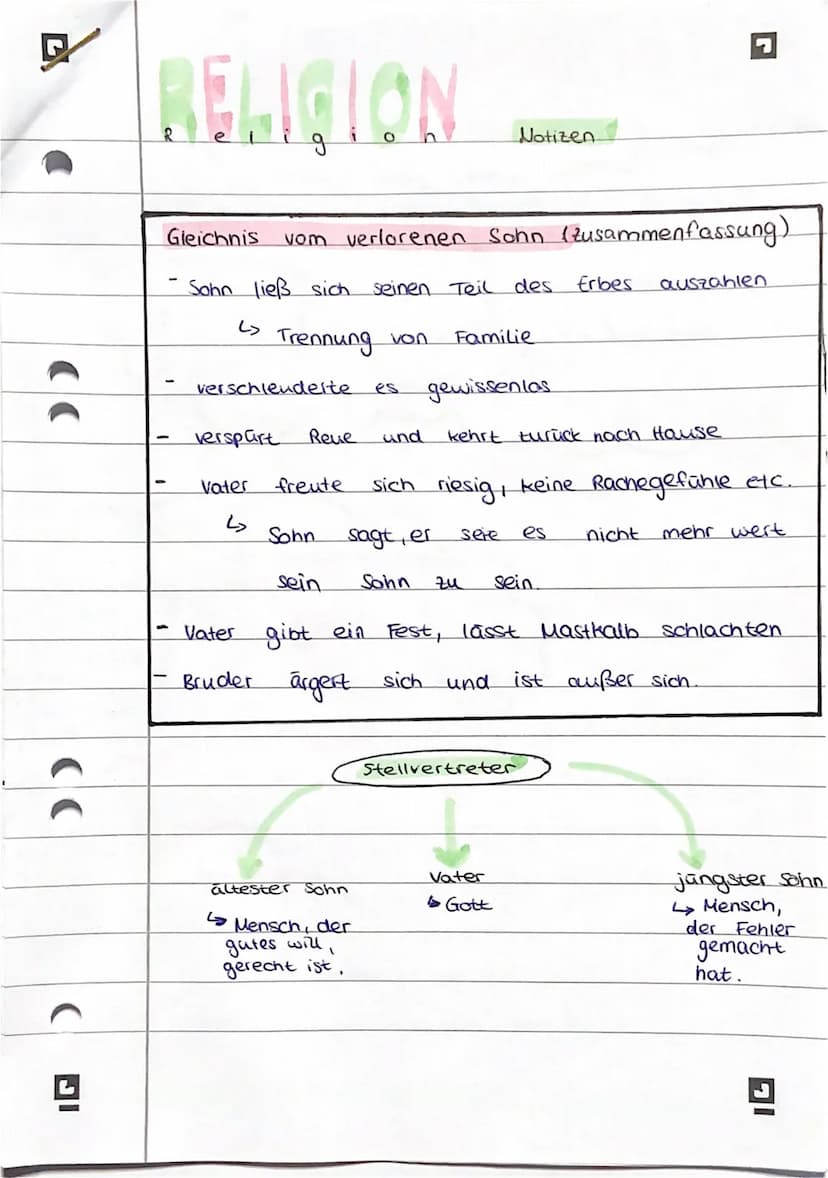 RELIGION
Religion Notizen
Gleichnis vom verlorenen Sohn (Zusammenfassung)
- Sohn ließ sich seinen Teil des Erbes auszahlen
↳ Trennung von Familie
- verschleuderte es gewissenlos
- verspürt Reue und kehrt zurück nach Hause
- Vater freute sich riesig, keine Rachegefühle etc.
↳ Sohn sagt, er seie es nicht mehr wert
sein Sohn zu sein.
- Vater gibt ein Fest, lässt Mastkalb schlachten
- Bruder ärgert sich und ist außer sich.
Stellvertreter
ältester Sohn
↳ Mensch, der
gutes will,
gerecht ist.
Vater
↳ Gott
jüngster Sohn
↳ Mensch,
der Fehler
gemacht
hat.